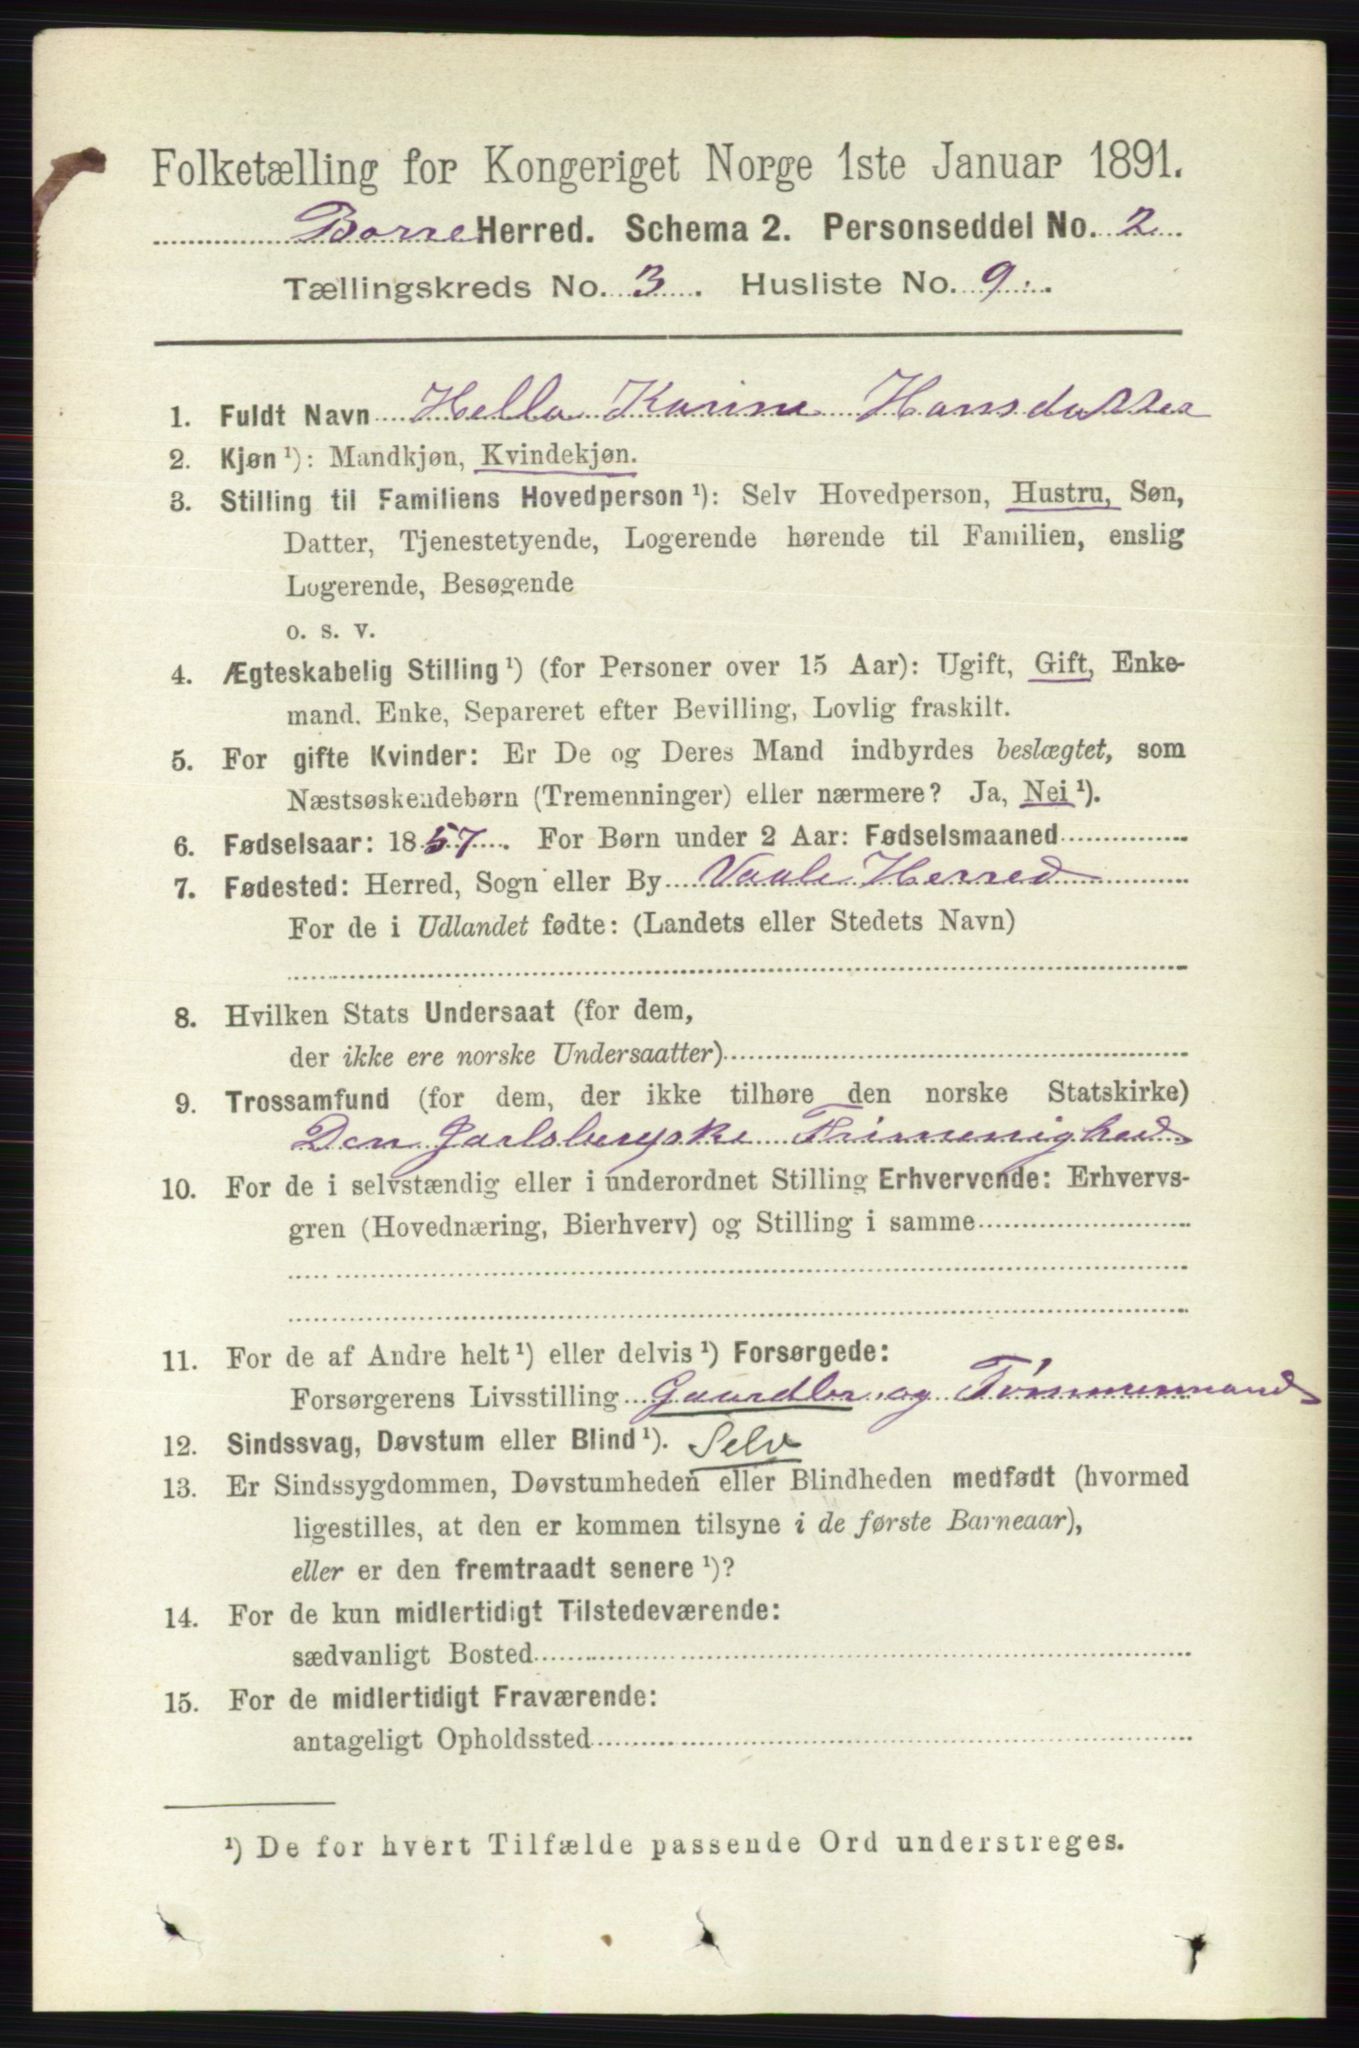 Folketælling for Kongeriget Norge 1ste Januar 1891.
Borre Herred. Schema 2. Personseddel No. 2
Tællingskreds No. 3. Husliste No. 9.
1. Fuldt Navn Hella Karine Hansdatter
2. Kjøn¹): Mandkjøn, Kvindekjøn.
3. Stilling til Familiens Hovedperson¹): Selv Hovedperson, Hustru, Søn,
Datter, Tjenestetyende, Logerende hørende til Familien, enslig
Logerende, Besøgende
o. s. v.
4. Ægteskabelig Stilling¹) (for Personer over 15 Aar): Ugift, Gift, Enke-
mand. Enke, Separeret efter Bevilling, Lovlig fraskilt.
5. For gifte Kvinder: Er De og Deres Mand indbyrdes beslægtet, som
Næstsøskendebørn (Tremenninger) eller nærmere? Ja, Nei¹).
6. Fødselsaar: 1857. For Børn under 2 Aar: Fødselsmaaned
7. Fødested: Herred, Sogn eller By Vaale Herred
For de i Udlandet fødte: (Landets eller Stedets Navn)
8. Hvilken Stats Undersaat (for dem,
der ikke ere norske Undersaatter)
9. Trossamfund (for dem, der ikke tilhøre den norske Statskirke)
Den Jarlsbergske Frimenighed
10. For de i selvstændig eller i underordnet Stilling Erhvervende: Erhvervs-
gren (Hovednæring, Bierhverv) og Stilling i samme
11. For de af Andre helt¹) eller delvis¹) Forsørgede:
Forsørgerens Livsstilling Gaardbr og Tømmermand
12. Sindssvag, Døvstum eller Blind¹). Selv
13. Er Sindssygdommen, Døvstumheden eller Blindheden medfødt (hvormed
ligestilles, at den er kommen tilsyne i de første Barneaar),
eller er den fremtraadt senere¹)?
14. For de kun midlertidigt Tilstedeværende:
sædvanligt Bosted
15. For de midlertidigt Fraværende:
antageligt Opholdssted
¹) De for hvert Tilfælde passende Ord understreges.